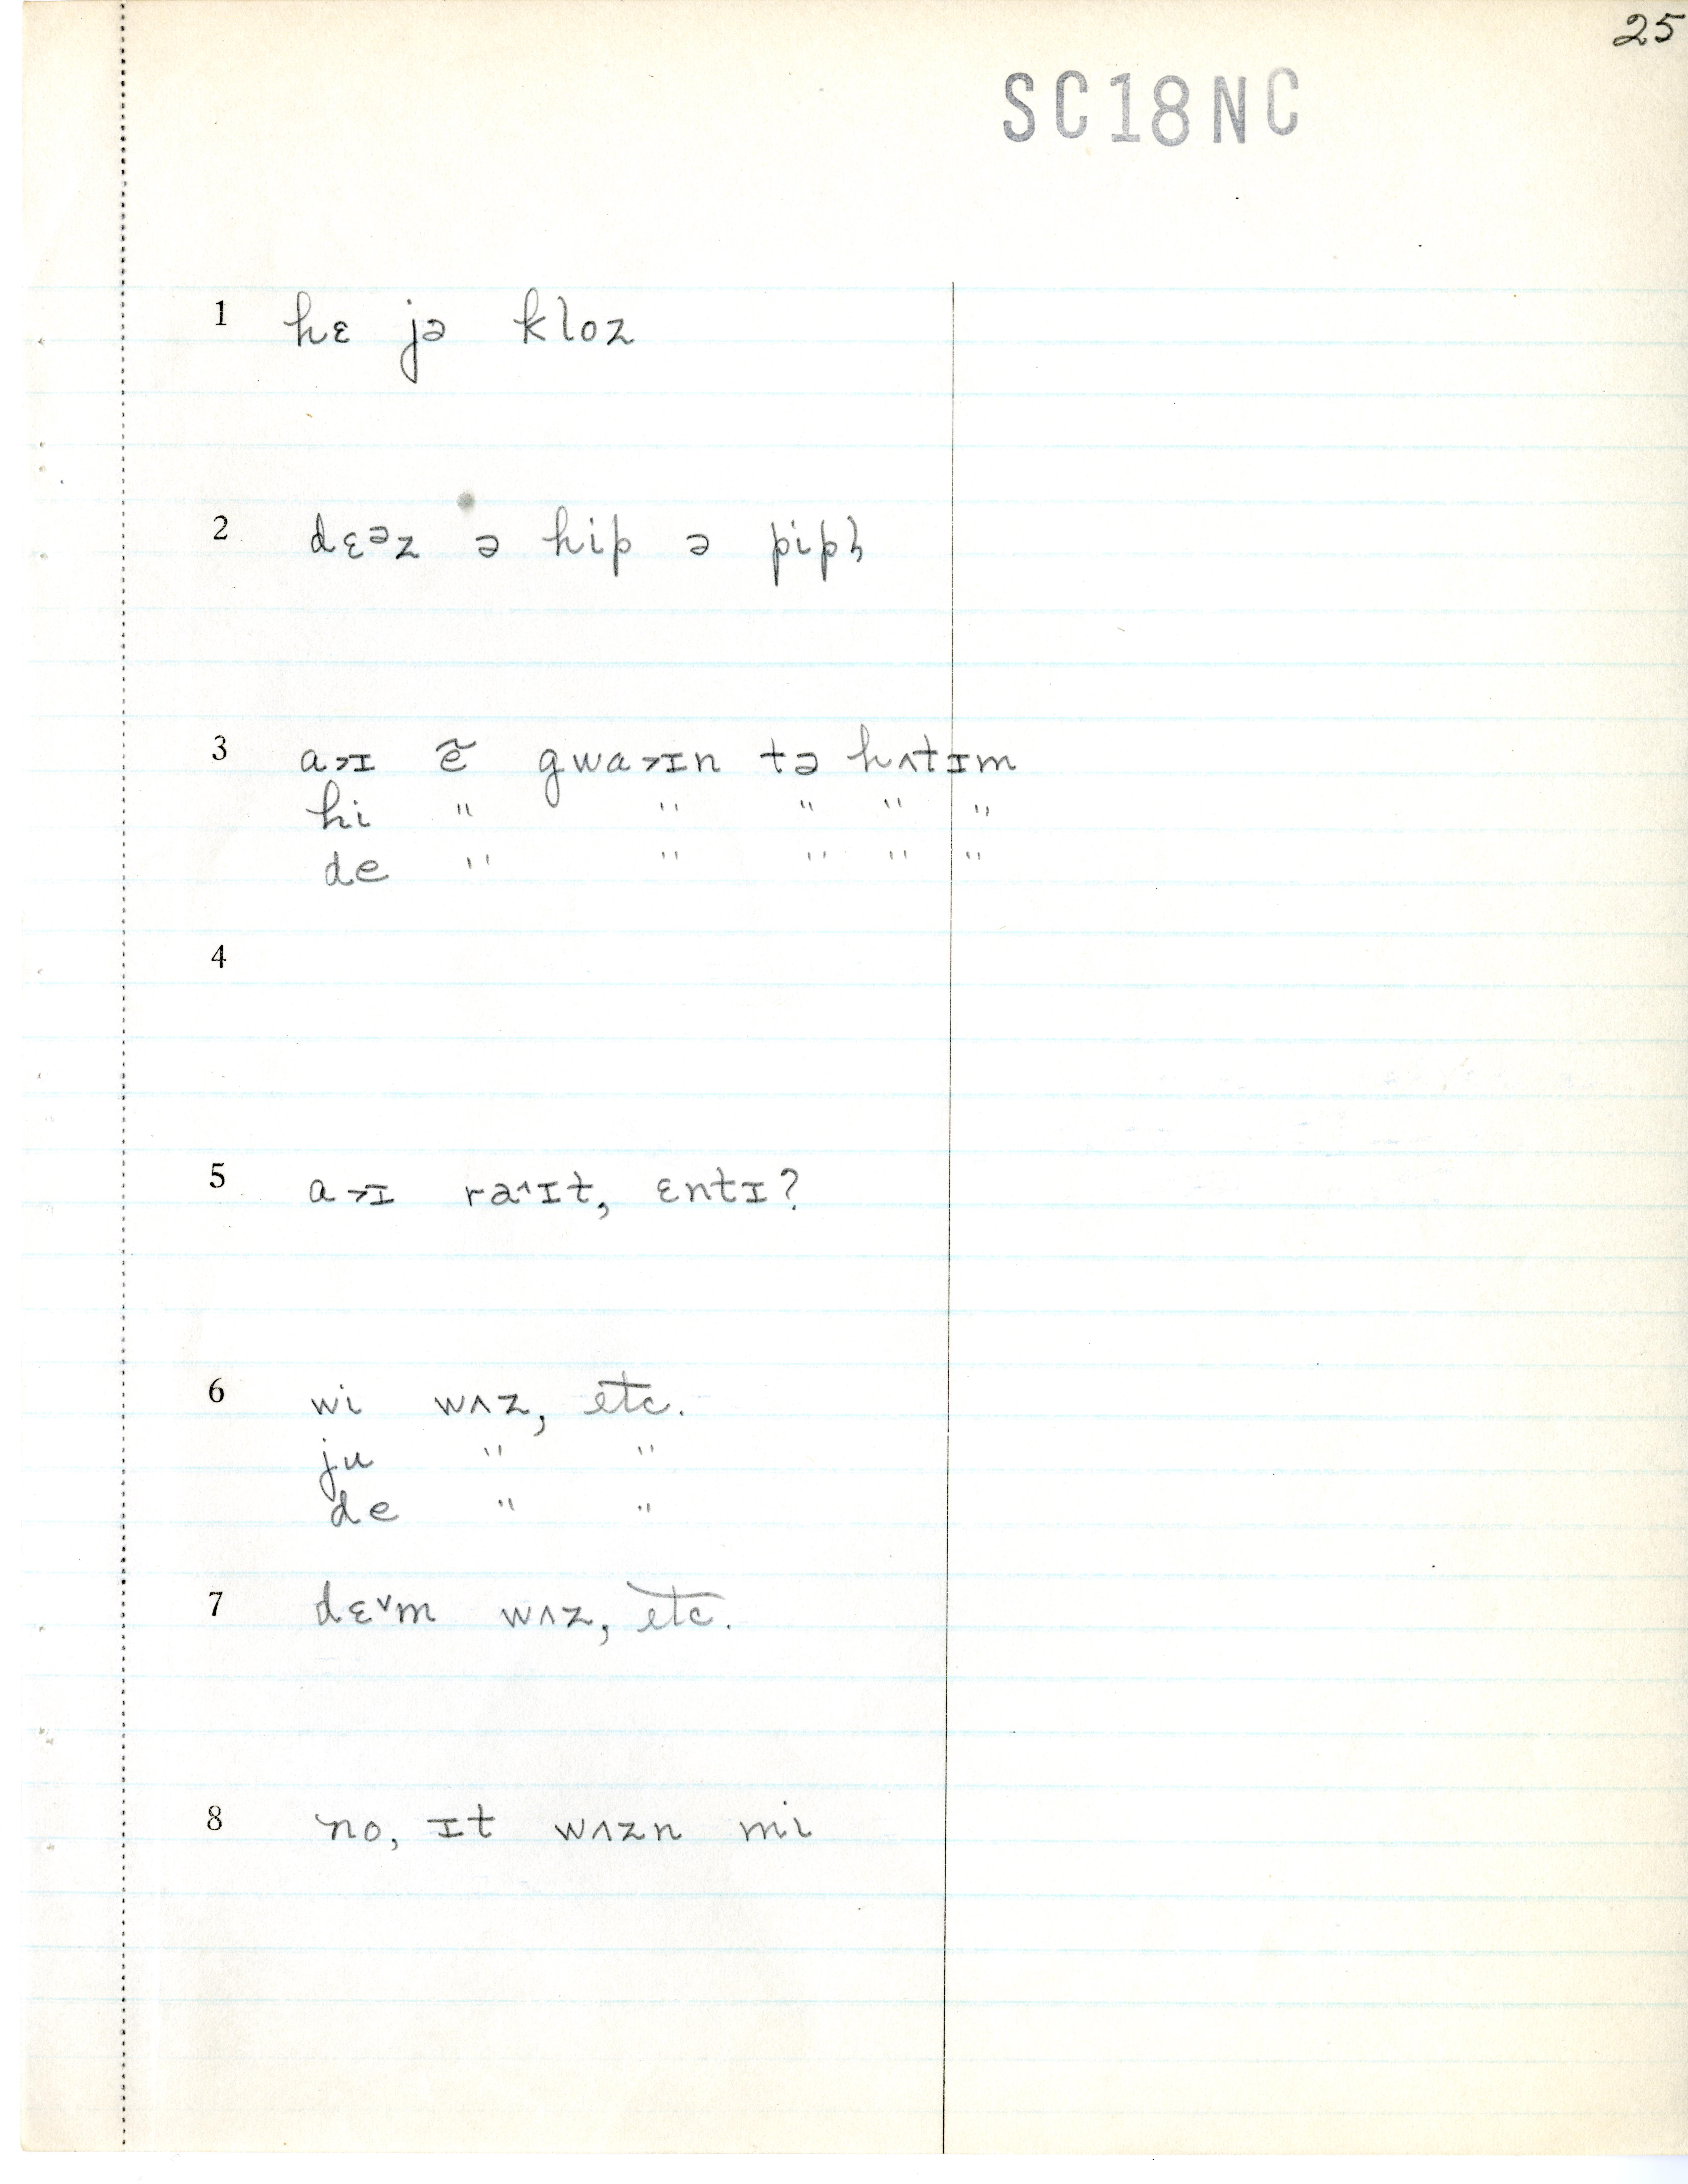 25
SC18NC
1 hɛ jə kloz
2 dɛᵊz ə hip ə pipl̩
3 a˃ɪ ẽ gwa˃ɪn tə hʌtɪm
hi " " " " "
de " " " " "
4
5 a˃ɪ ra˄ɪt, ɛntɪ?
6 wi wʌz, etc.
ju " "
de " "
7 dɛ˅m wʌz, etc.
8 no, ɪt wʌzn mi